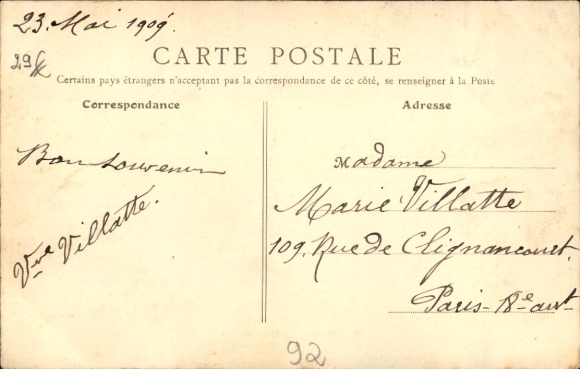 23. Mai 1909.
29
CARTE POSTALE
Certains pays étrangers n'acceptant pas la correspondance de ce côté, se renseigner à la Poste
Correspondance
Bon Souvenir
Vve Villatte.
Adresse
Madame
Marie Villatte
109, Rue de Clignancourt.
Paris - 18e arrt
92